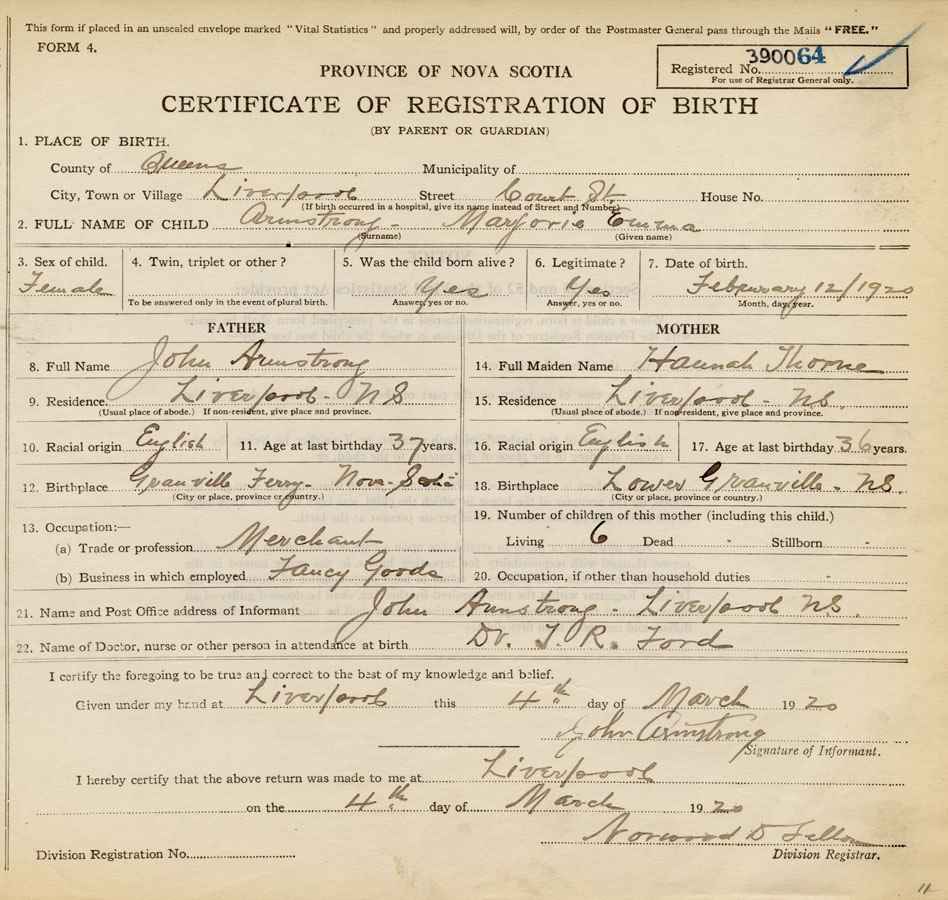 This form if placed in an unsealed envelope marked "Vital Statistics" and properly addressed will, by order of the Postmaster General pass through the Mails "FREE."
FORM 4.
390064
Registered No.
For use of Registrar General only.
PROVINCE OF NOVA SCOTIA
CERTIFICATE OF REGISTRATION OF BIRTH
(BY PARENT OR GUARDIAN)
1. PLACE OF BIRTH.
County of Queens Municipality of
City, Town or Village Liverpool Street Court St. House No.
(If birth occurred in a hospital, give its name instead of Street and Number)
2. FULL NAME OF CHILD Armstrong - Marjorie Emma
(Surname) (Given name)
3. Sex of child. 4. Twin, triplet or other? 5. Was the child born alive? 6. Legitimate? 7. Date of birth.
Female Yes Yes February 12/1920
To be answered only in the event of plural birth. Answer, yes or no. Answer, yes or no. Month, day, year.
FATHER MOTHER
8. Full Name John Armstrong 14. Full Maiden Name Hannah Thorne
9. Residence Liverpool - NS 15. Residence Liverpool - NS.
(Usual place of abode.) If non-resident, give place and province. (Usual place of abode.) If non-resident, give place and province.
10. Racial origin English 11. Age at last birthday 37 years. 16. Racial origin English 17. Age at last birthday 36 years.
12. Birthplace Granville Ferry - Nova Scotia 18. Birthplace Lower Granville - NS.
(City or place, province or country.) (City or place, province or country.)
13. Occupation:— 19. Number of children of this mother (including this child.)
(a) Trade or profession Merchant Living 6 Dead - Stillborn -
(b) Business in which employed Fancy Goods 20. Occupation, if other than household duties -
21. Name and Post Office address of Informant John Armstrong - Liverpool NS.
22. Name of Doctor, nurse or other person in attendance at birth Dr. J. R. Ford
I certify the foregoing to be true and correct to the best of my knowledge and belief.
Given under my hand at Liverpool this 4th day of March 1920
John Armstrong
Signature of Informant.
I hereby certify that the above return was made to me at Liverpool
on the 4th day of March 1920
Norwood D
Division Registration No. Division Registrar.
11